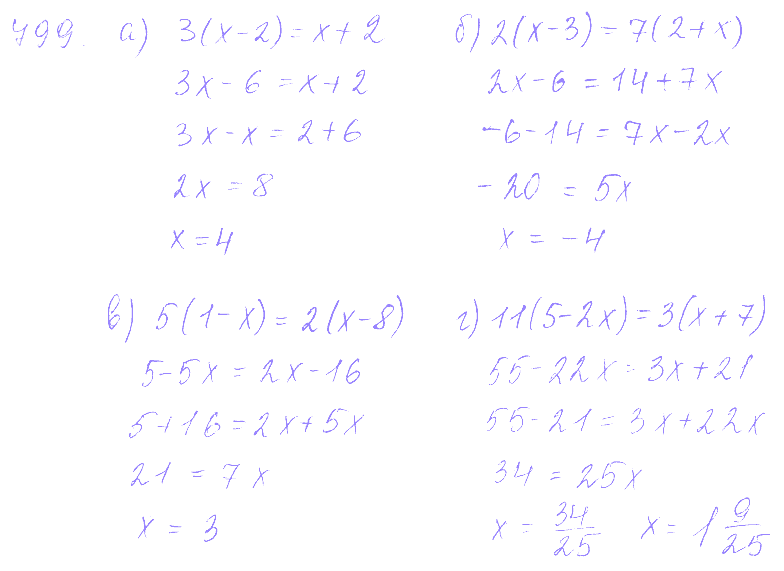 499. а) 3(x-2)=x+2 б) 2(x-3)=7(2+x)
3x-6=x+2 2x-6=14+7x
3x-x=2+6 -6-14=7x-2x
2x=8 -20=5x
x=4 x=-4
в) 5(1-x)=2(x-8) г) 11(5-2x)=3(x+7)
5-5x=2x-16 55-22x=3x+21
5+16=2x+5x 55-21=3x+22x
21=7x 34=25x
x=3 x=34/25 x=1 9/25